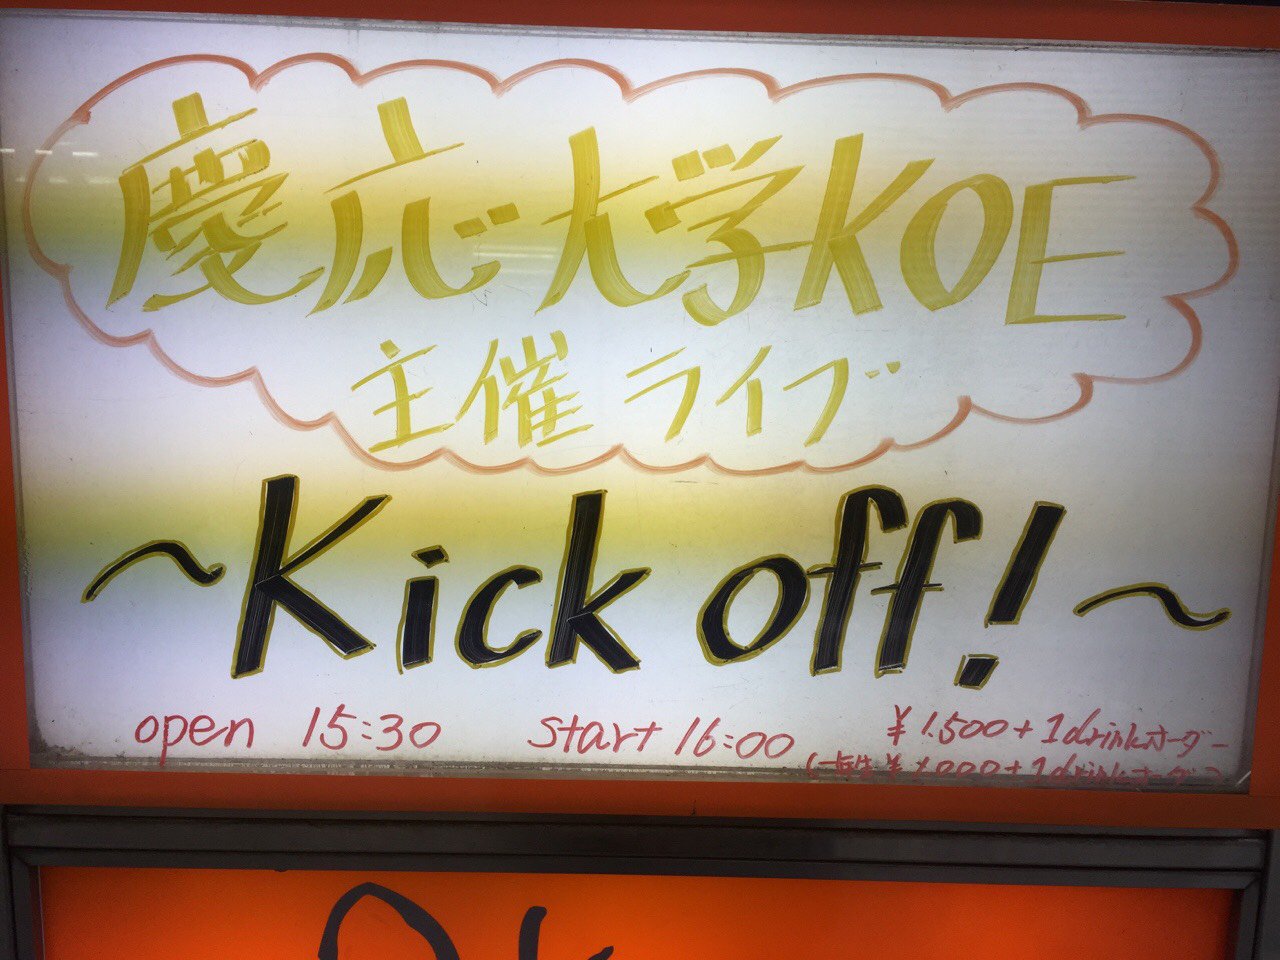 慶応大学KOE
主催ライブ
～Kick off!～
open 15:30 start 16:00 ¥1.500+1drinkオーダー
(一年生 ¥1.000+1drinkオーダー)